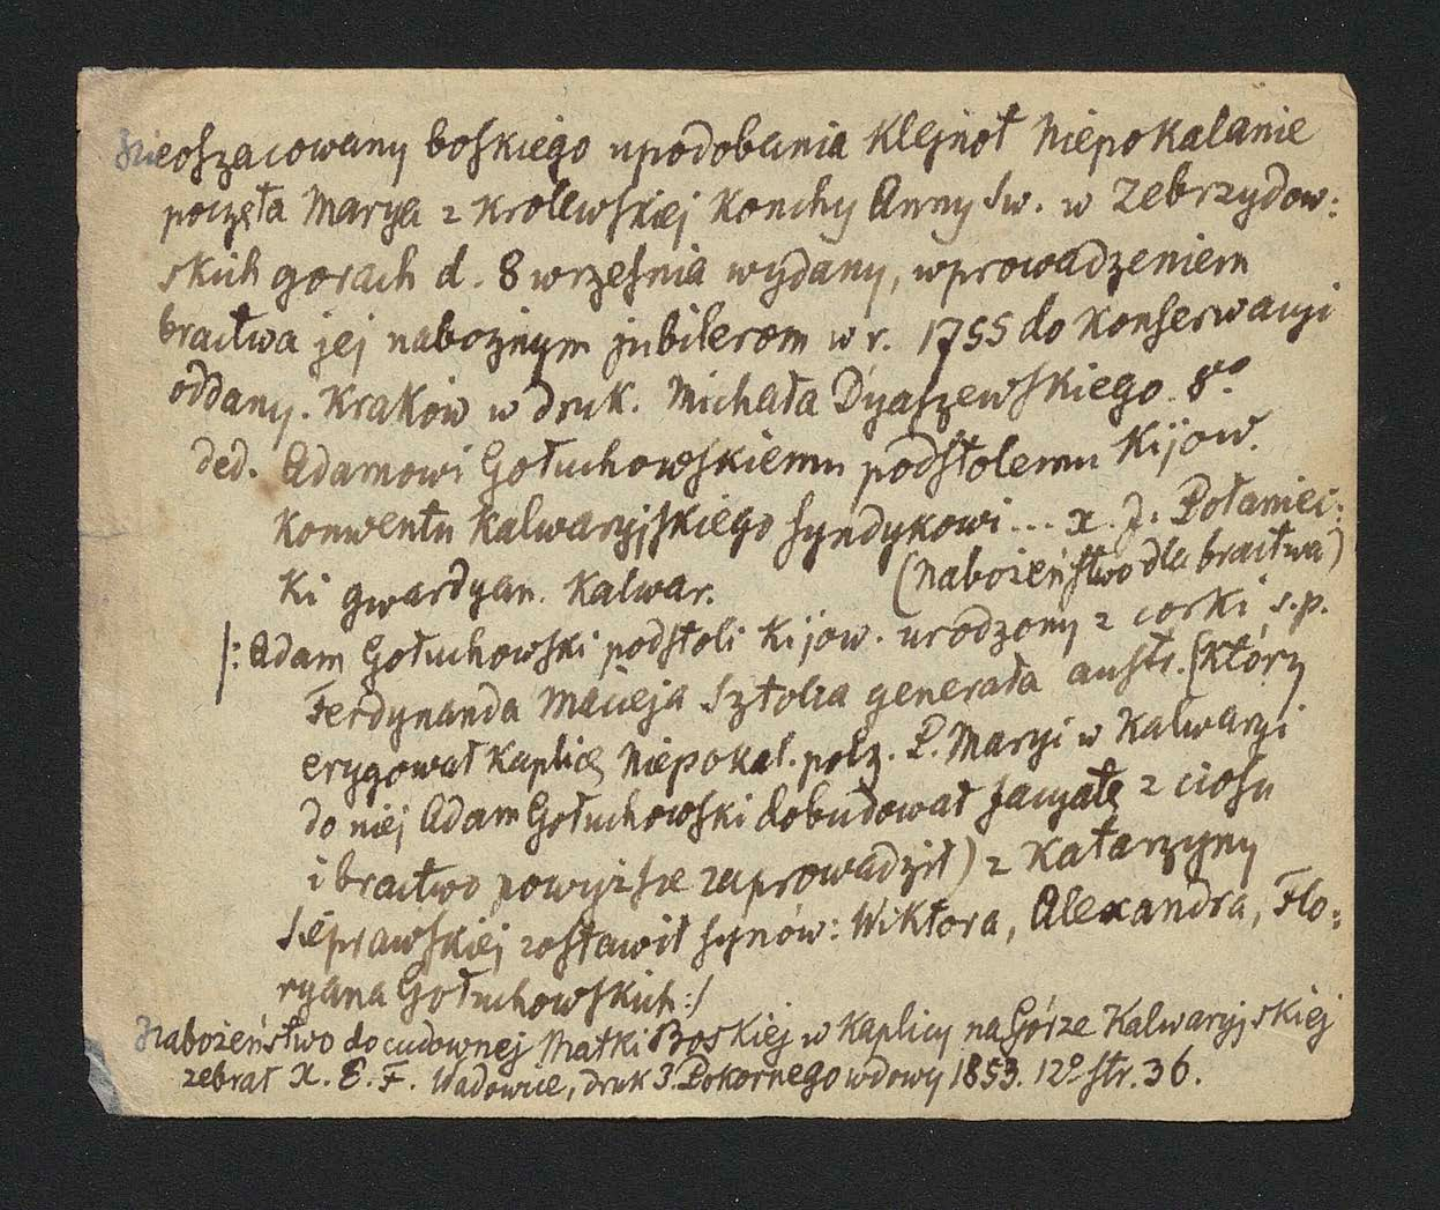 Nieoszacowany boskiego upodobania Klejnot Niepokalanie
poczęta Marya z Krolewskiej Konchy Anny Sw. w Zebrzydow:
skich gorach d. 8 wrzesnia wydany, wprowadzeniem
bractwa jej naboznym jubilerom w r. 1755 do Konserwacyi
oddany. Krakow w druk. Michała Dyaszewskiego. 8º
ded. Adamowi Gołuchowskiemu podstolemu Kijow.
Konwentu Kalwaryjskiego Syndykowi... x. J. Połaniec:
ki gwardyan. Kalwar. (Nabożeństwo dla bractwa)
/: Adam Gołuchowski podstoli Kijow. urodzony z corki s.p.
Ferdynanda Macieja Sztolca generała austr. (Który
erygował Kaplicę Niepokal. P. Maryi w Kalwaryi
do niej Adam Gołuchowski dobudował facyatę z ciosu
i bractwo powyższe zaprowadził) z Katarzyny
Sieprawskiej zostawił synów: Wiktora, Alexandra, Flo:
ryana Gołuchowskich :/
Nabożeństwo do cudownej Matki Boskiej w Kaplicy na Górze Kalwaryjskiej
zebrał X. E. F. Wadowice, druk J. Pokornego wdowy 1853. 12º str. 36.